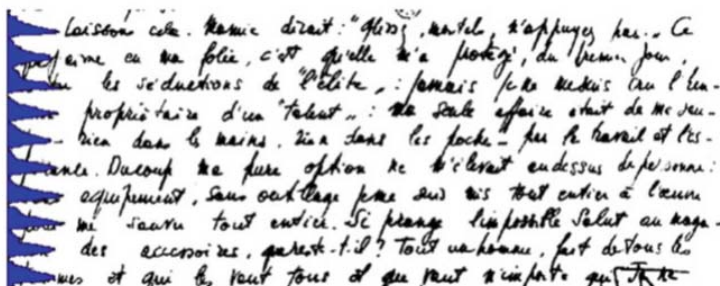 Laissons cela. Mamie dirait : "glissez, mortels, n'appuyez pas". Ce
j'aime en ma folie, c'est qu'elle m'a protégé, du premier jour,
les séductions de "l'élite" : jamais je ne me suis cru l'heu-
propriétaire d'un "talent" : ma seule affaire était de me sau-
rien dans les mains, rien dans les poches - par le travail et l'es-
. Du coup ma pure option ne m'élevait au dessus de personne :
équipement, sans outillage je me suis mis tout entier à l'œuvre
me sauver tout entier. Si je range l'impossible Salut au maga-
des accessoires, que reste-t-il ? Tout un homme, fait de tous les
et qui les vaut tous et que vaut n'importe qui